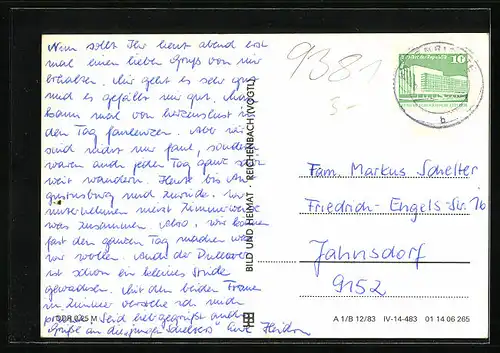 Nun sollt Ihr heut abend erst
mal einen lieben Gruß von mir
erhalten. Mir geht es sehr gut
und es gefällt mir gut. Man
kann mal von herzenslust in
den Tag faulenzen. Aber wir
sind nicht nur faul, sondern
waren auch jeden Tag ganz schön
weit wandern. Heute bis
gustusburg und zurück. Wir
unternehmen meist zimmerweise
was zusammen. Also, wir können
fast den ganzen Tag machen was
wir wollen. Auch der
ist schon ein kleines Stück
gewachsen. Mit den beiden Frauen
im Zimmer verstehe ich mich
prima. Seid lieb gegrüßt auch
Grüße an die "jungen Schelters" Eure Heidi
9381
5-
10
b
Fam. Markus Schelter
Friedrich-Engels-Str. 16
Jahnsdorf
9152
BILD UND HEIMAT REICHENBACH (VOGTL)
A 1/B 12/83 IV-14-483 01 14 06 265